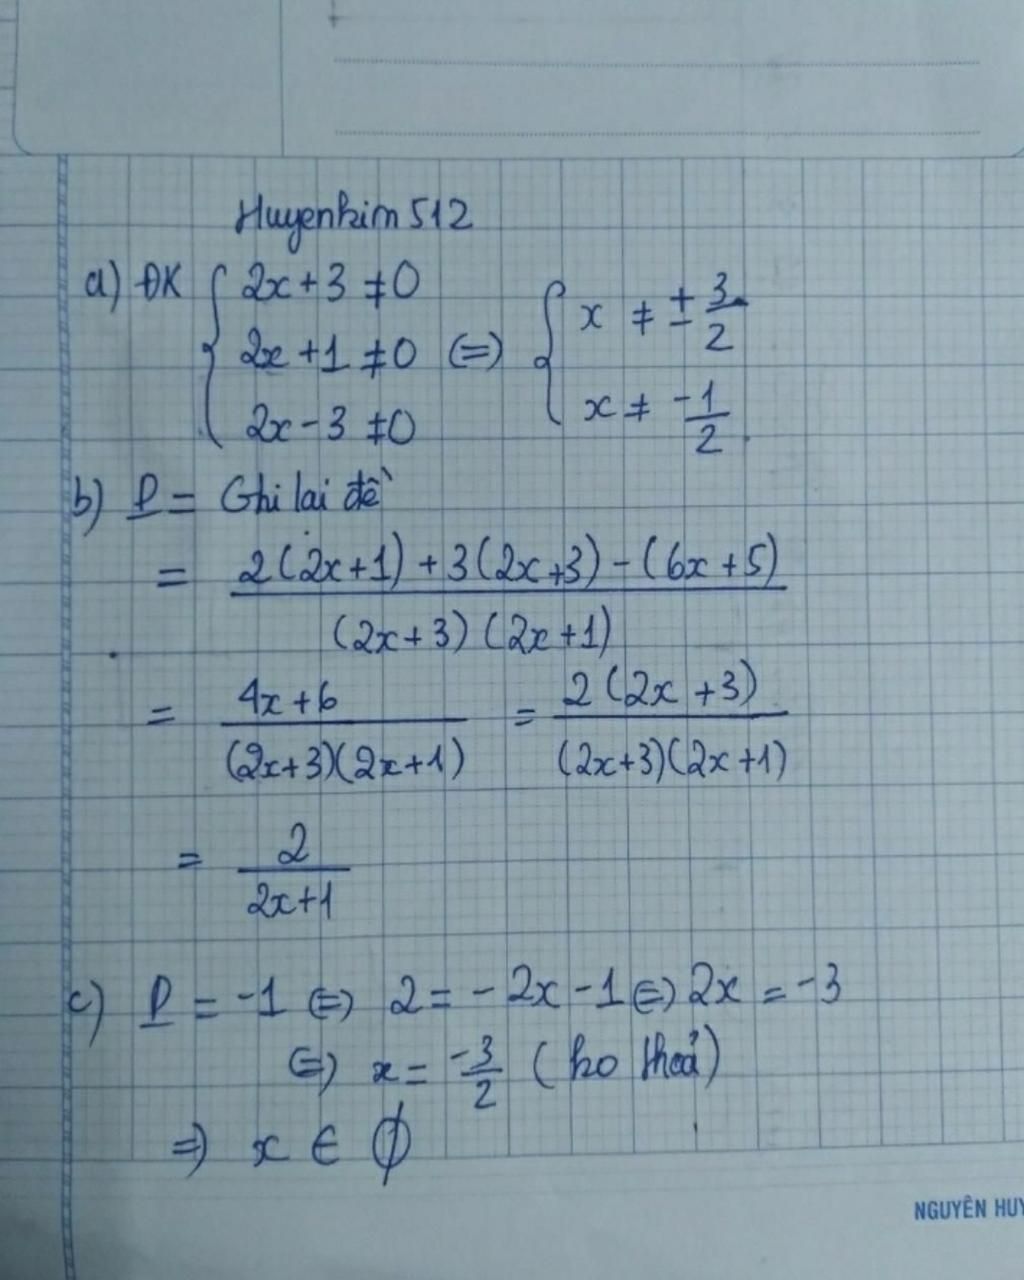 Huyenkim 512
a) ĐK { 2x+3 ≠0
2x+1 ≠0 (=) { x ≠ ± 3/2
2x-3 ≠0 x ≠ -1/2
b) P = Ghi lai đề
= 2(2x+1) +3(2x+3) -(6x+5) / (2x+3)(2x+1)
= 4x+6 / (2x+3)(2x+1) = 2(2x+3) / (2x+3)(2x+1)
= 2 / 2x+1
c) P = -1 (=) 2 = -2x -1 (=) 2x = -3
(=) x = -3/2 (ko thoả)
=) x ∈ ∅
NGUYÊN HUY